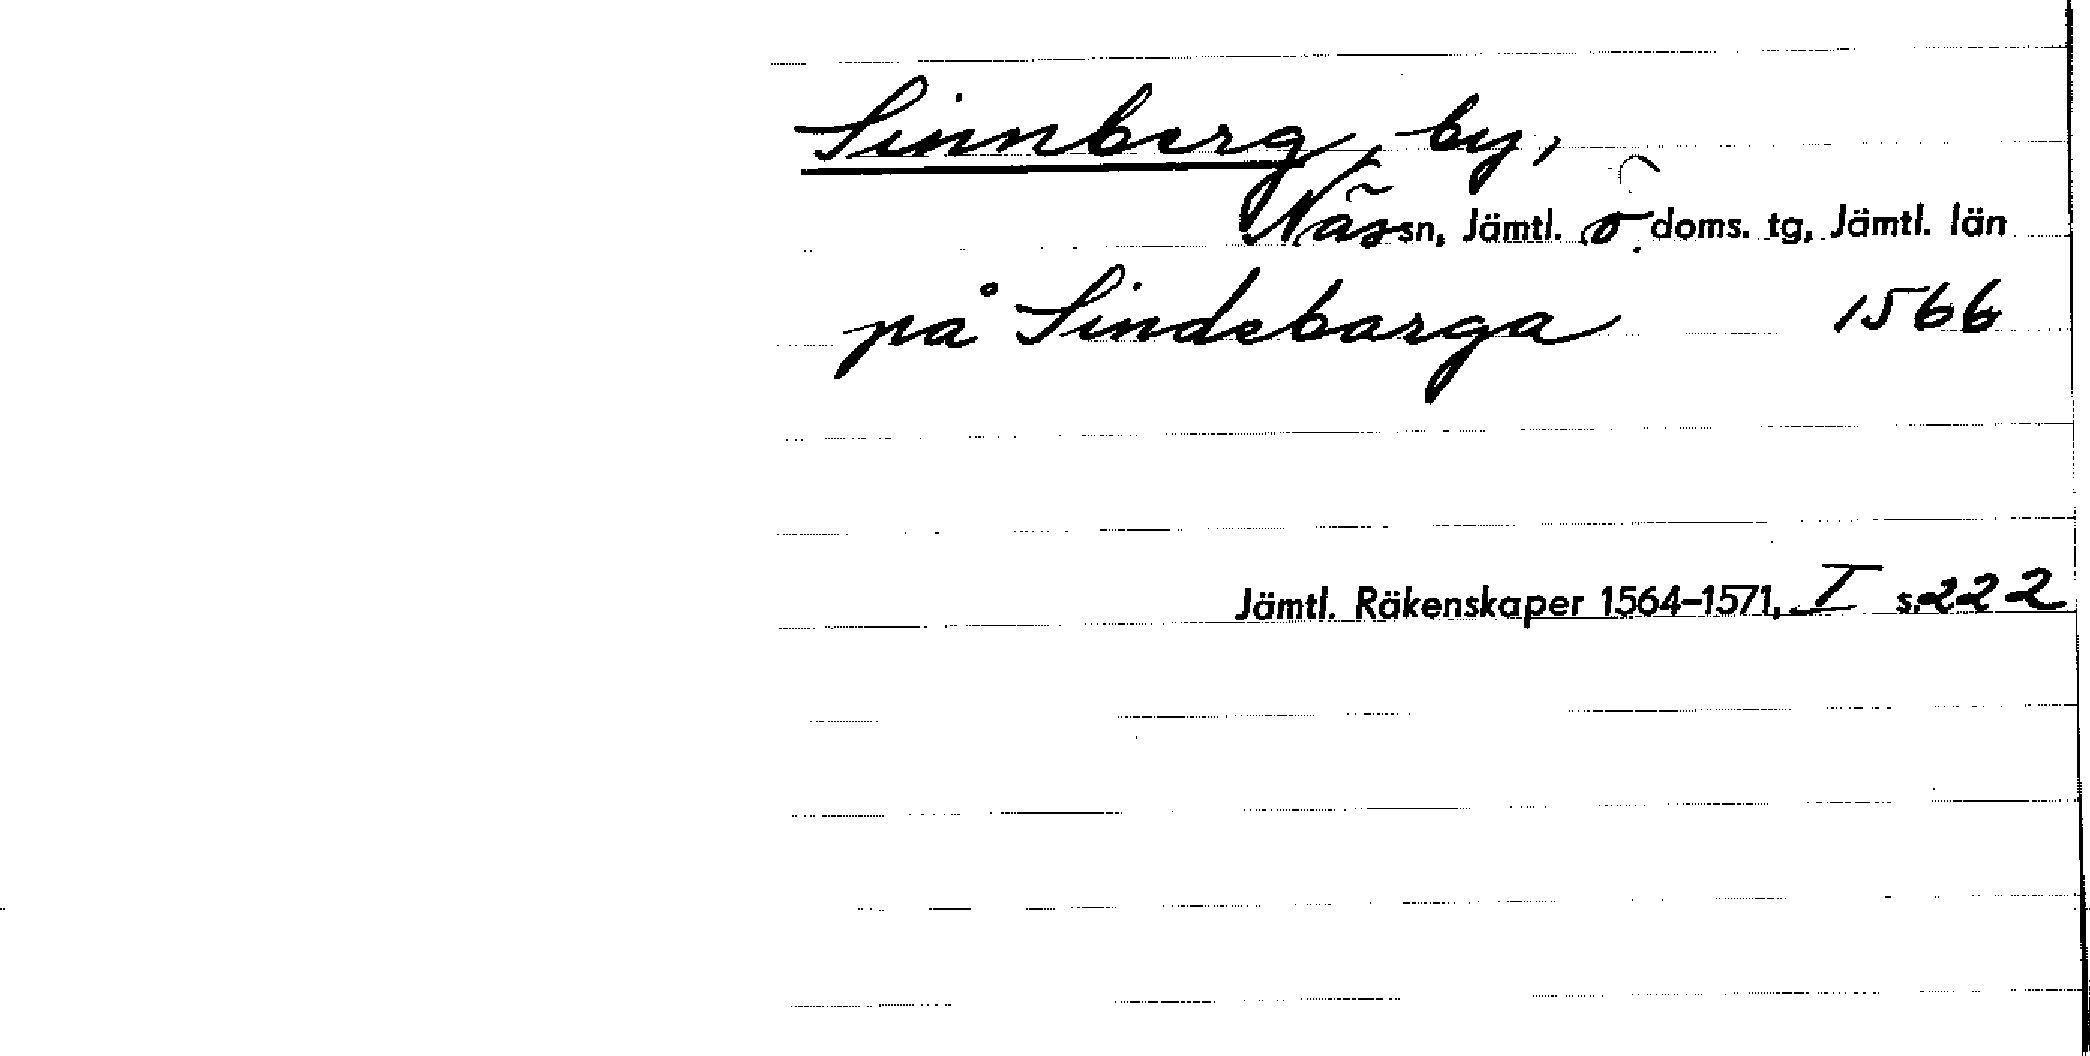 Sinnberg, by,
Näs sn, Jämtl. ö. doms. tg, Jämtl. län
på Sindebarga 1566
Jämtl. Räkenskaper 1564–1571, I s. 222